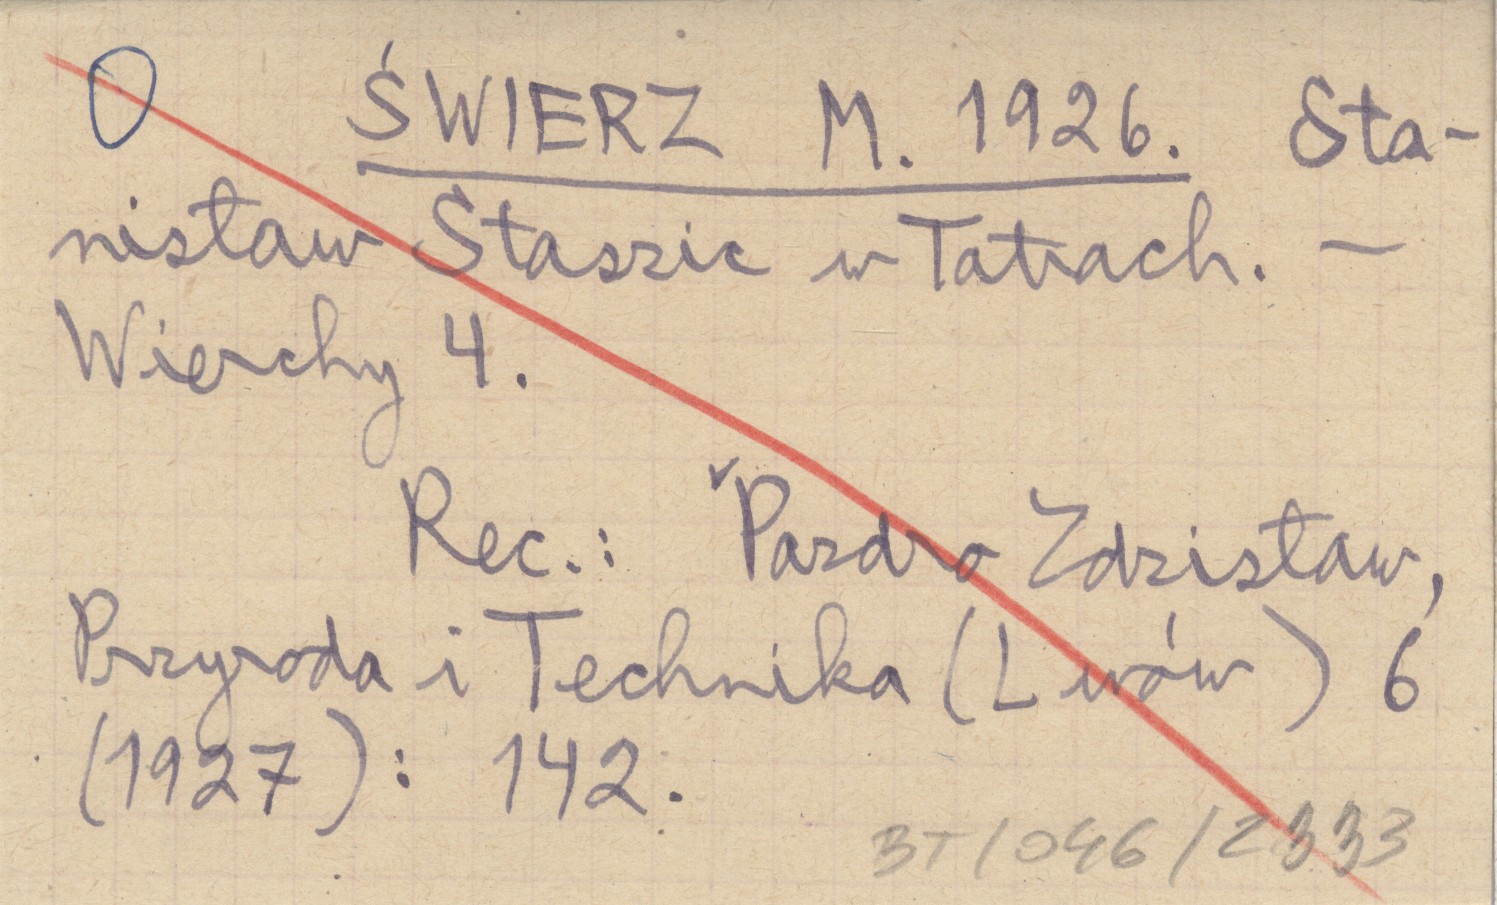 O ŚWIERZ M. 1926. Sta-
nisław Staszic w Tatrach. —
Wierchy 4.
Rec.: ✓Pazdro Zdzisław,
Przyroda i Technika (Lwów) 6
(1927): 142.
BT/046/2333